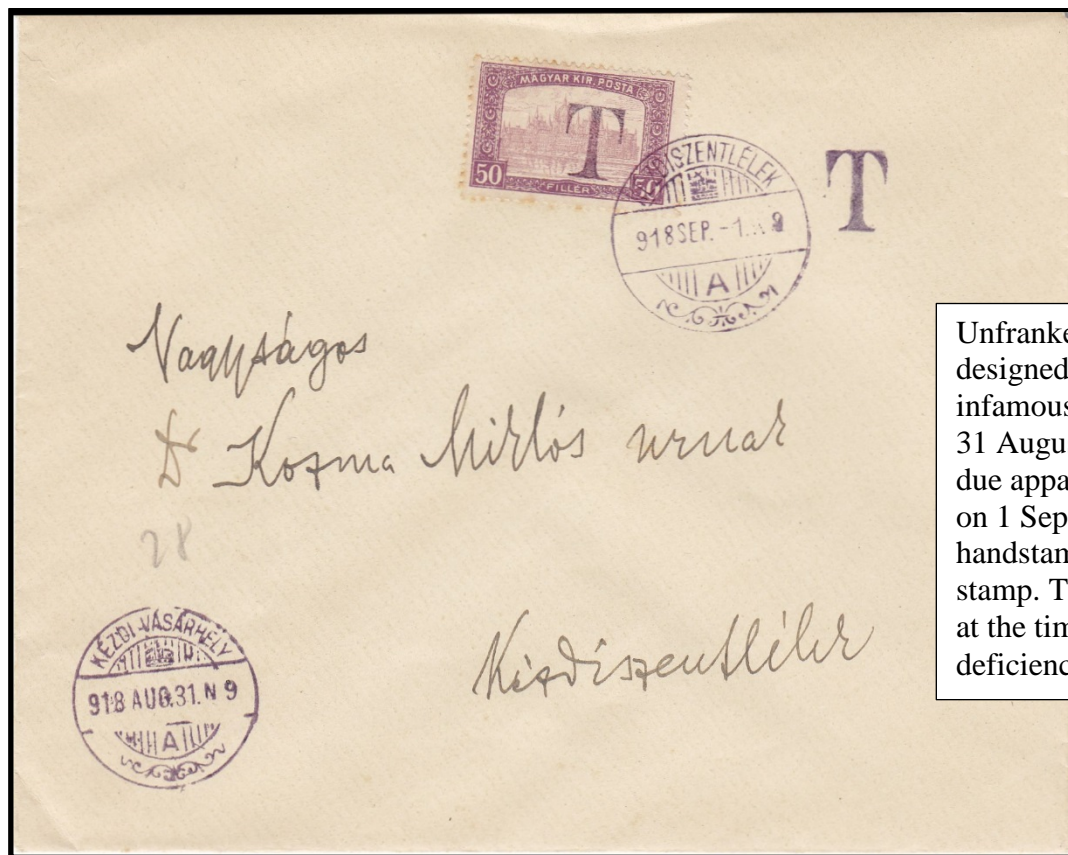 MAGYAR KIR. POSTA
T
50 50
FILLÉR
DISZENTLÉLEK
918 SEP. -1.
A
T
Nagyságos
Dr Kozma Miklós urnak
28
Kézdiszentlélek
KÉZDI-VÁSÁRHELY
918 AUG.31.N 9
A
Unfranke
designed
infamous
31 Augu
due appa
on 1 Sep
handstam
stamp. T
at the tim
deficienc